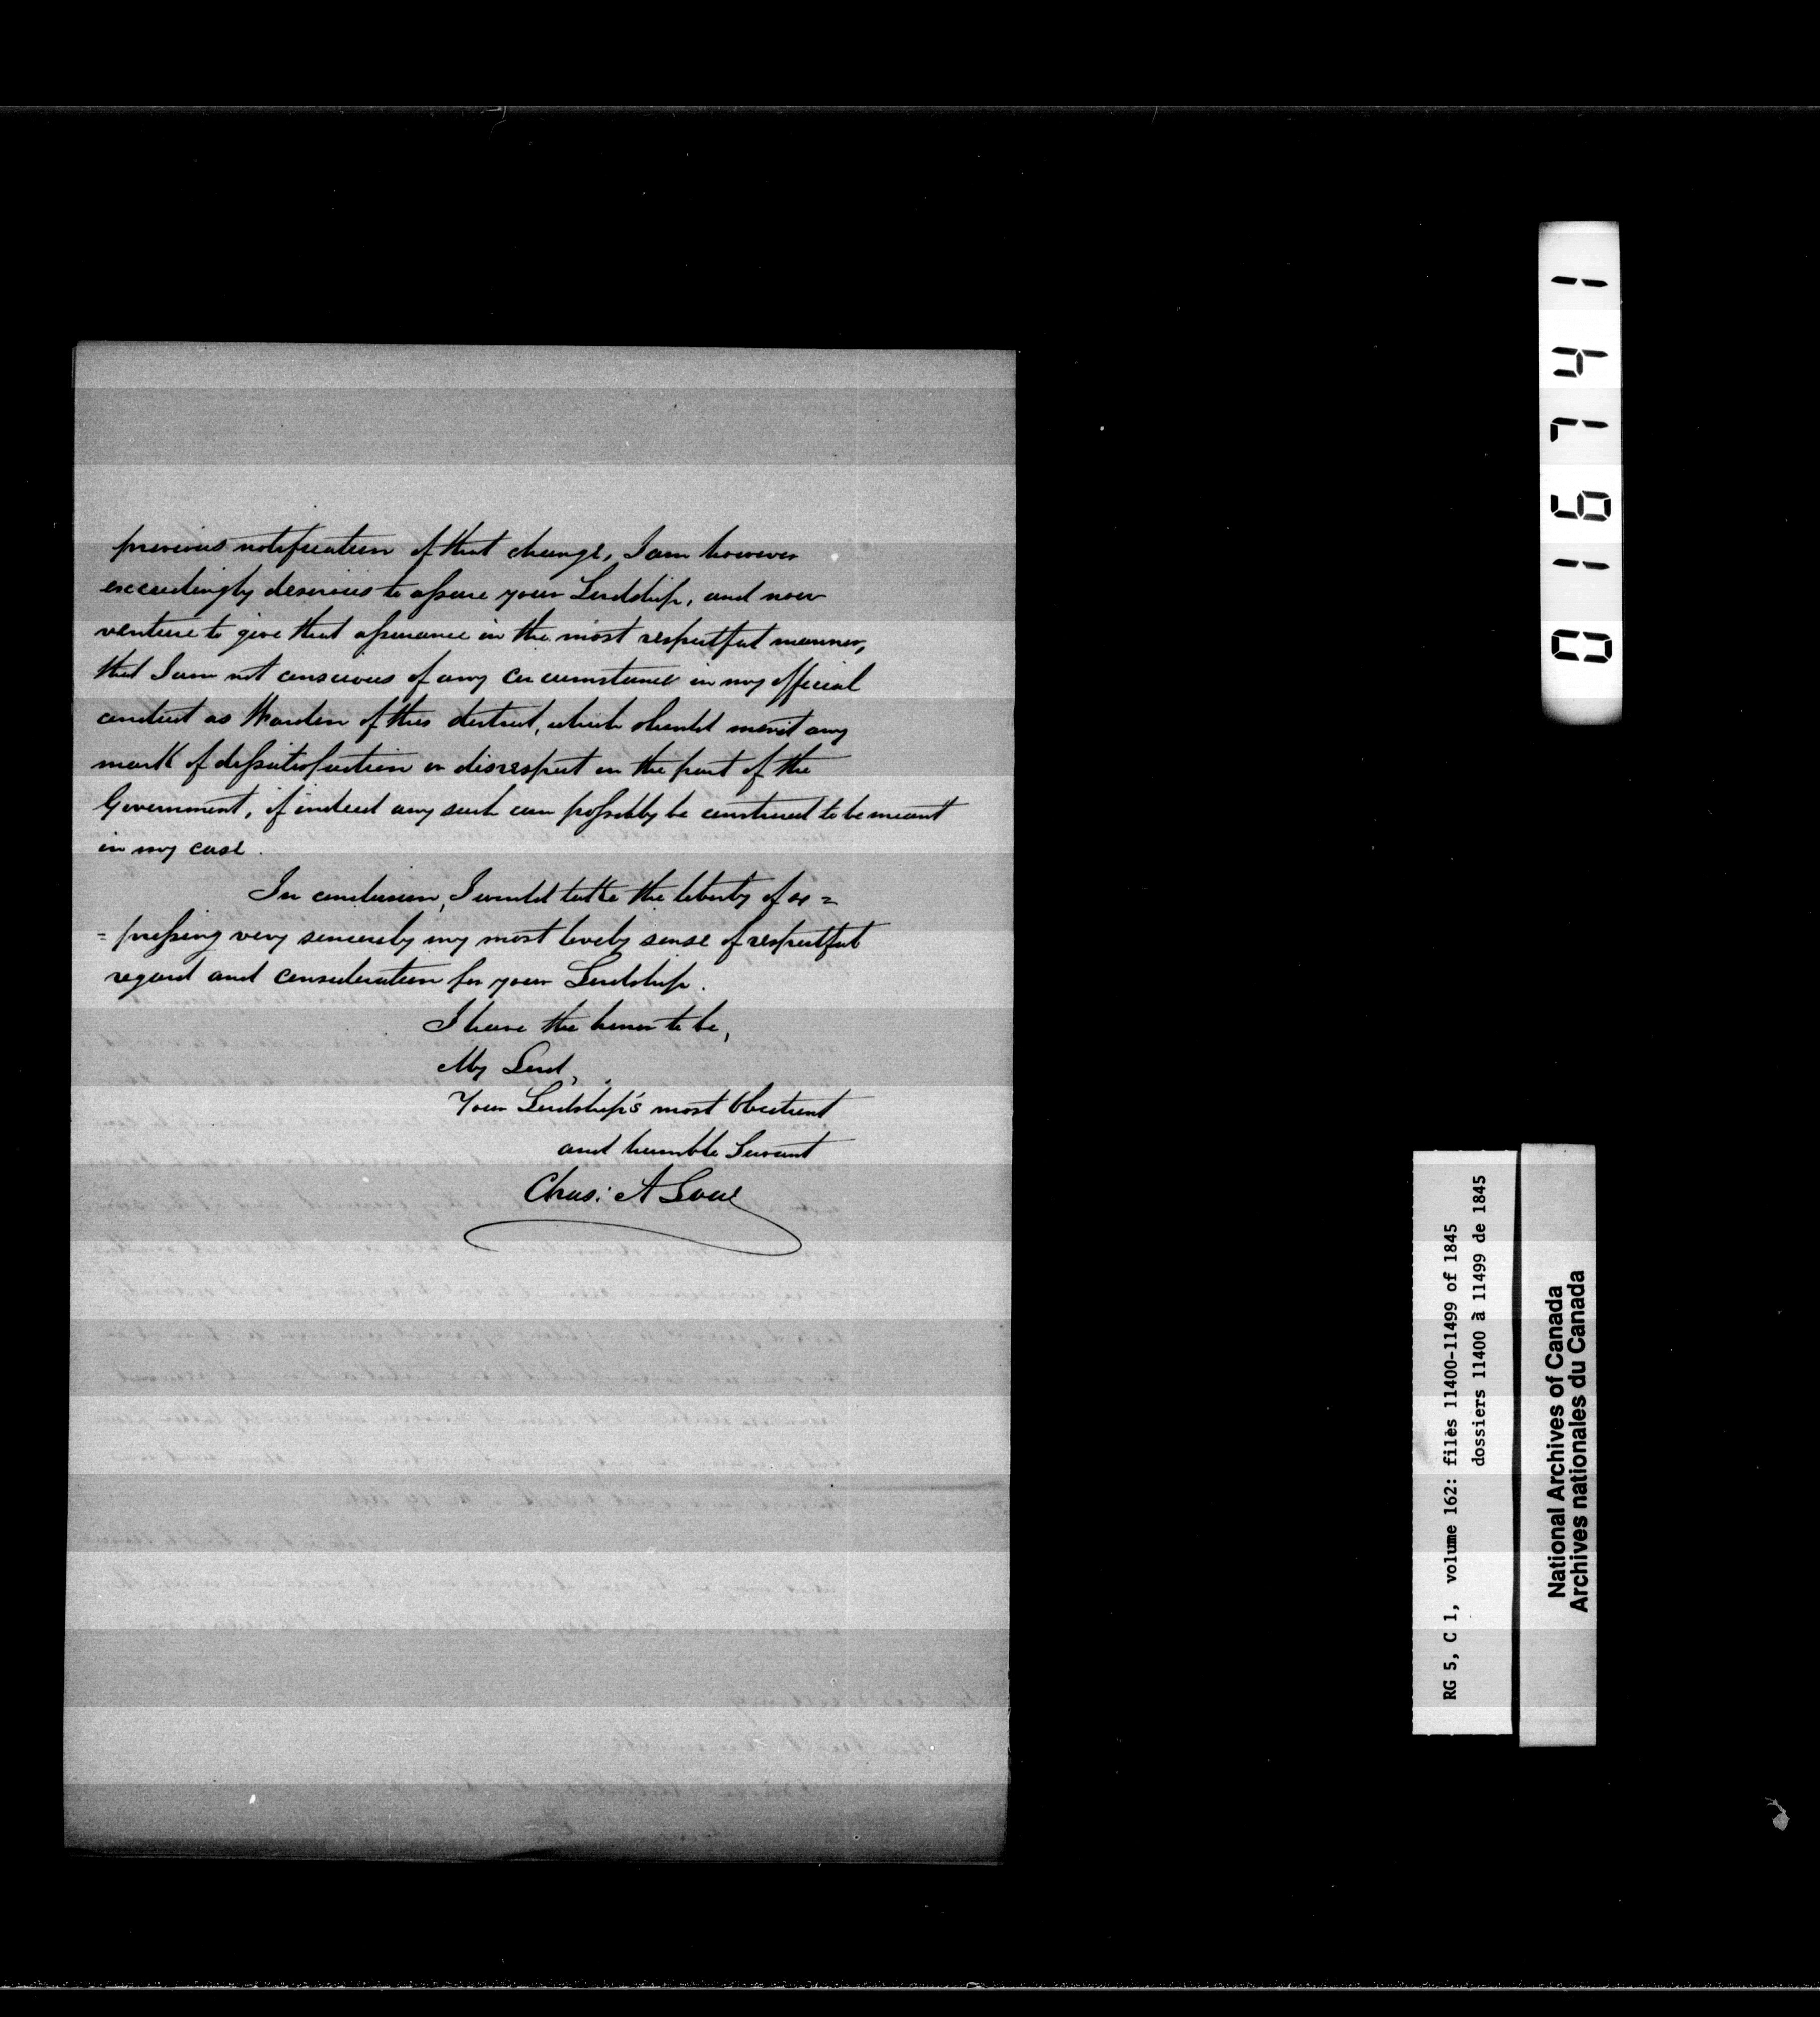 previous notification of that change, I am however
exceedingly desirous to assure your Lordship, and now
venture to give that assurance in the most respectful manner,
that I am not conscious of any circumstance in my official
conduct as Warden of this district, which should merit any
mark of dissatisfaction or disrespect on the part of the
Government, if indeed any such can possibly be construed to be meant
in my case.
In conclusion, I would take the liberty of ex =
= pressing very sincerely my most lively sense of respectful
regard and consideration for your Lordship.
I have the honor to be,
My Lord,
Your Lordship's most Obedient
and humble Servant
Chas: A Low
016741
RG 5, C 1, volume 162: files 11400-11499 of 1845
dossiers 11400 à 11499 de 1845
National Archives of Canada
Archives nationales du Canada